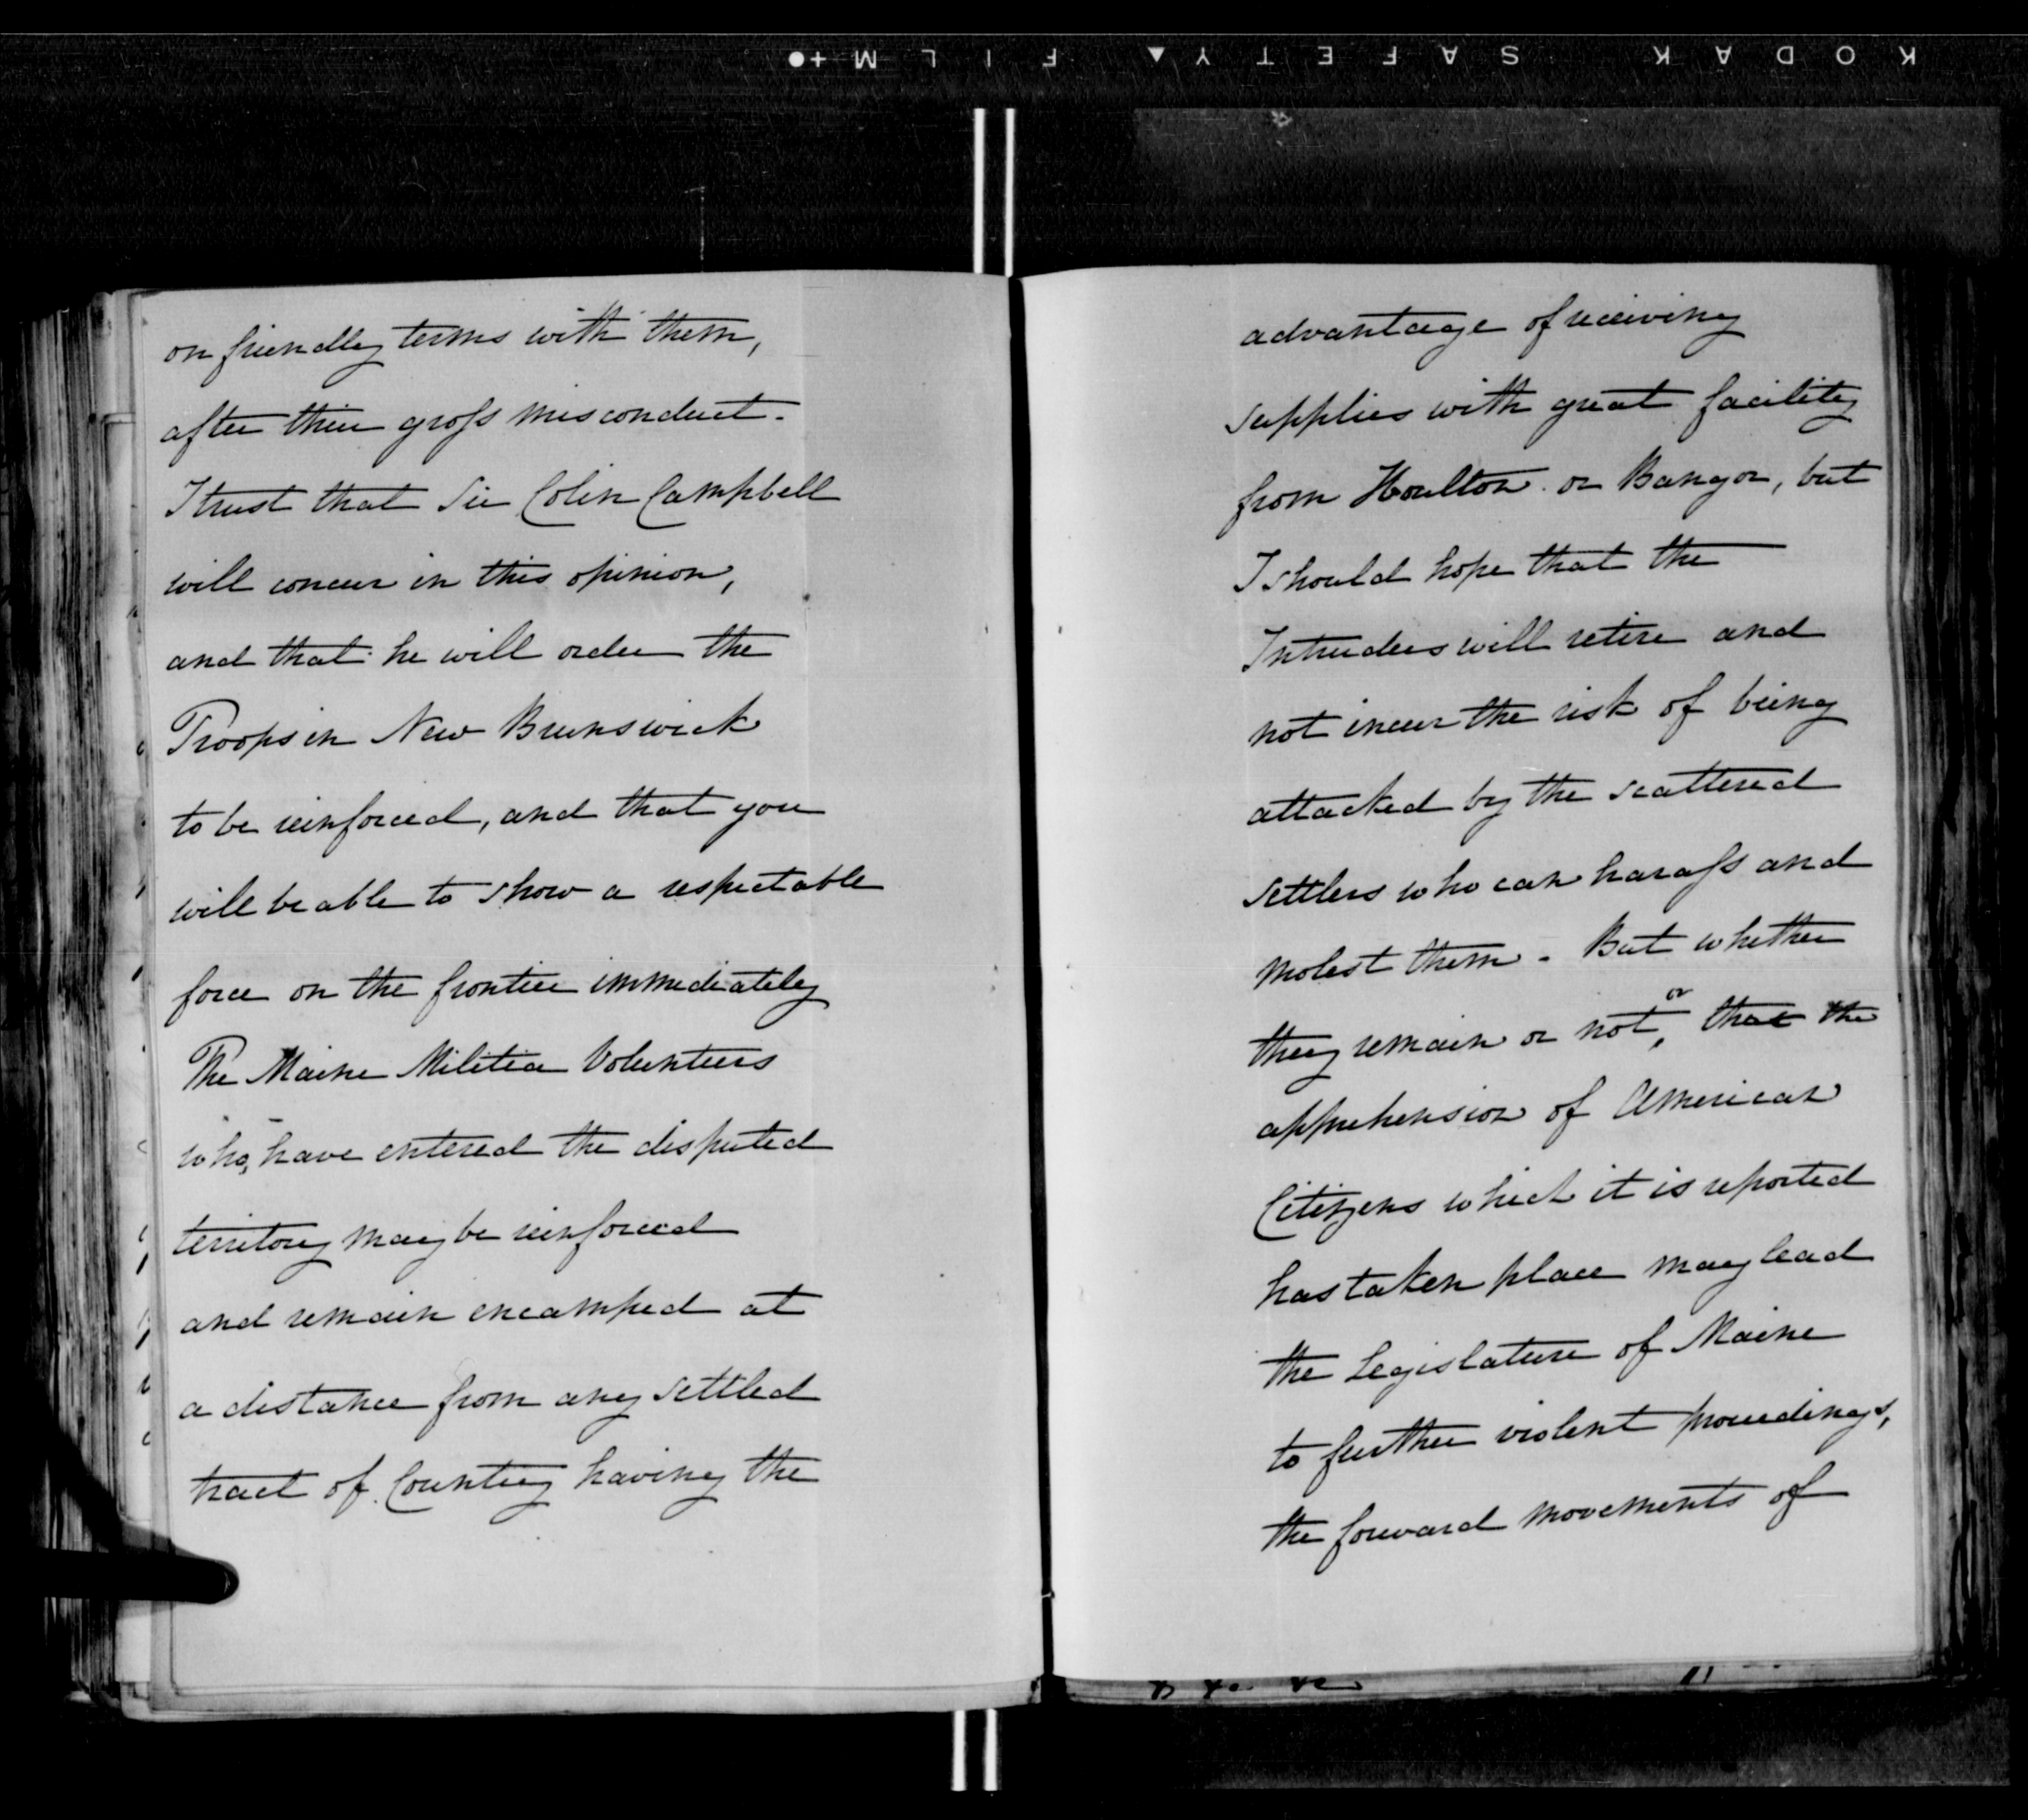 KODAK SAFETY FILM
on friendly terms with them,
after their gross misconduct.
I trust that Sir Colin Campbell
will concur in this opinion,
and that he will order the
Troops in New Brunswick
to be reinforced, and that you
will be able to show a respectable
force on the frontier immediately
The Maine Militia Volunteers
who, have entered the disputed
territory may be reinforced
and remain encamped at
a distance from any settled
tract of Country having the
advantage of receiving
supplies with great facility
from Houlton or Bangor, but
I should hope that the
Intruders will retire and
not incur the risk of being
attacked by the scattered
settlers who can harass and
molest them. But whether
they remain or not, or that the
apprehension of American
Citizens which it is reported
has taken place may lead
the Legislature of Maine
to further violent proceedings,
the forward movements of